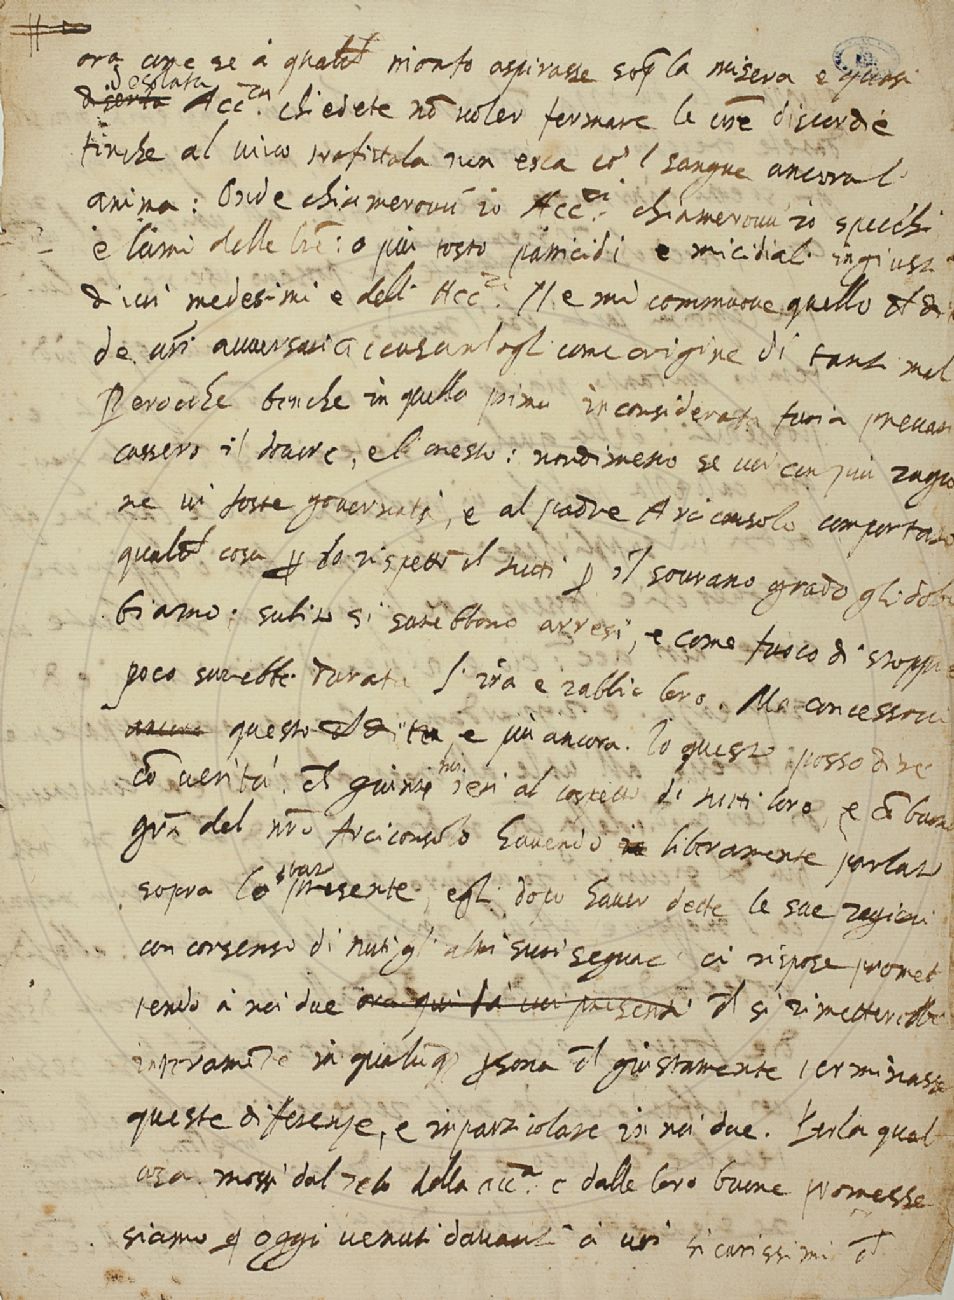 ora come se à qualche trionfo aspirasse sopra la misera e quasi
diserta desolata Acc.ca chiedete nõ voler fermare le vr̃e discordie
finche al vivo trafittola non esca co'l sangue ancora l'
anima: Onde chiamerovvi io Acc.ci chiamerovvi io specchi
e lumi delle lr̃e: o più tosto parricidi e micidiali ingiusti
di voi medesimi e delli Acc.ci. Ne mi commuove quello che
de vr̃i avversarii come origine di tanti mali
Perocche benche in quella prima inconsiderata furia prevari
cassero il dovere, e l'onesto: nondimeno se voi con più ragio
ne vi foste governati, e al padre Arciconsolo comportato
qualche cosa per lo rispetto che tutti per il sovrano grado gli dob
biamo: subito si sarebbono arresi, e come fuoco di stoppie
poco sarebbe durata l'ira e rabbia loro. Ma concessovi
ancora questo e più ancora. Io questo posso dire
cõ verità che giunti noi ieri al cospetto di tutti loro, e cõ buona
gr̃a del nr̃o Arciconsolo havendo liberamente parlato
sopra lo stato presente, egli dopo haver dette le sue ragioni
con consenso di tutti gl'altri suoi seguaci ci rispose promet
tendo à noi due ora qui da voi presenti che si rimetterebbe
interamẽte in qualunque persona che giustamente terminasse
queste differenze, e in particolare in noi due. Per la qual
cosa mossi dal zelo della Acc.a e dalle loro buone promesse
siamo per oggi venuti davanti à voi sicurissimi che